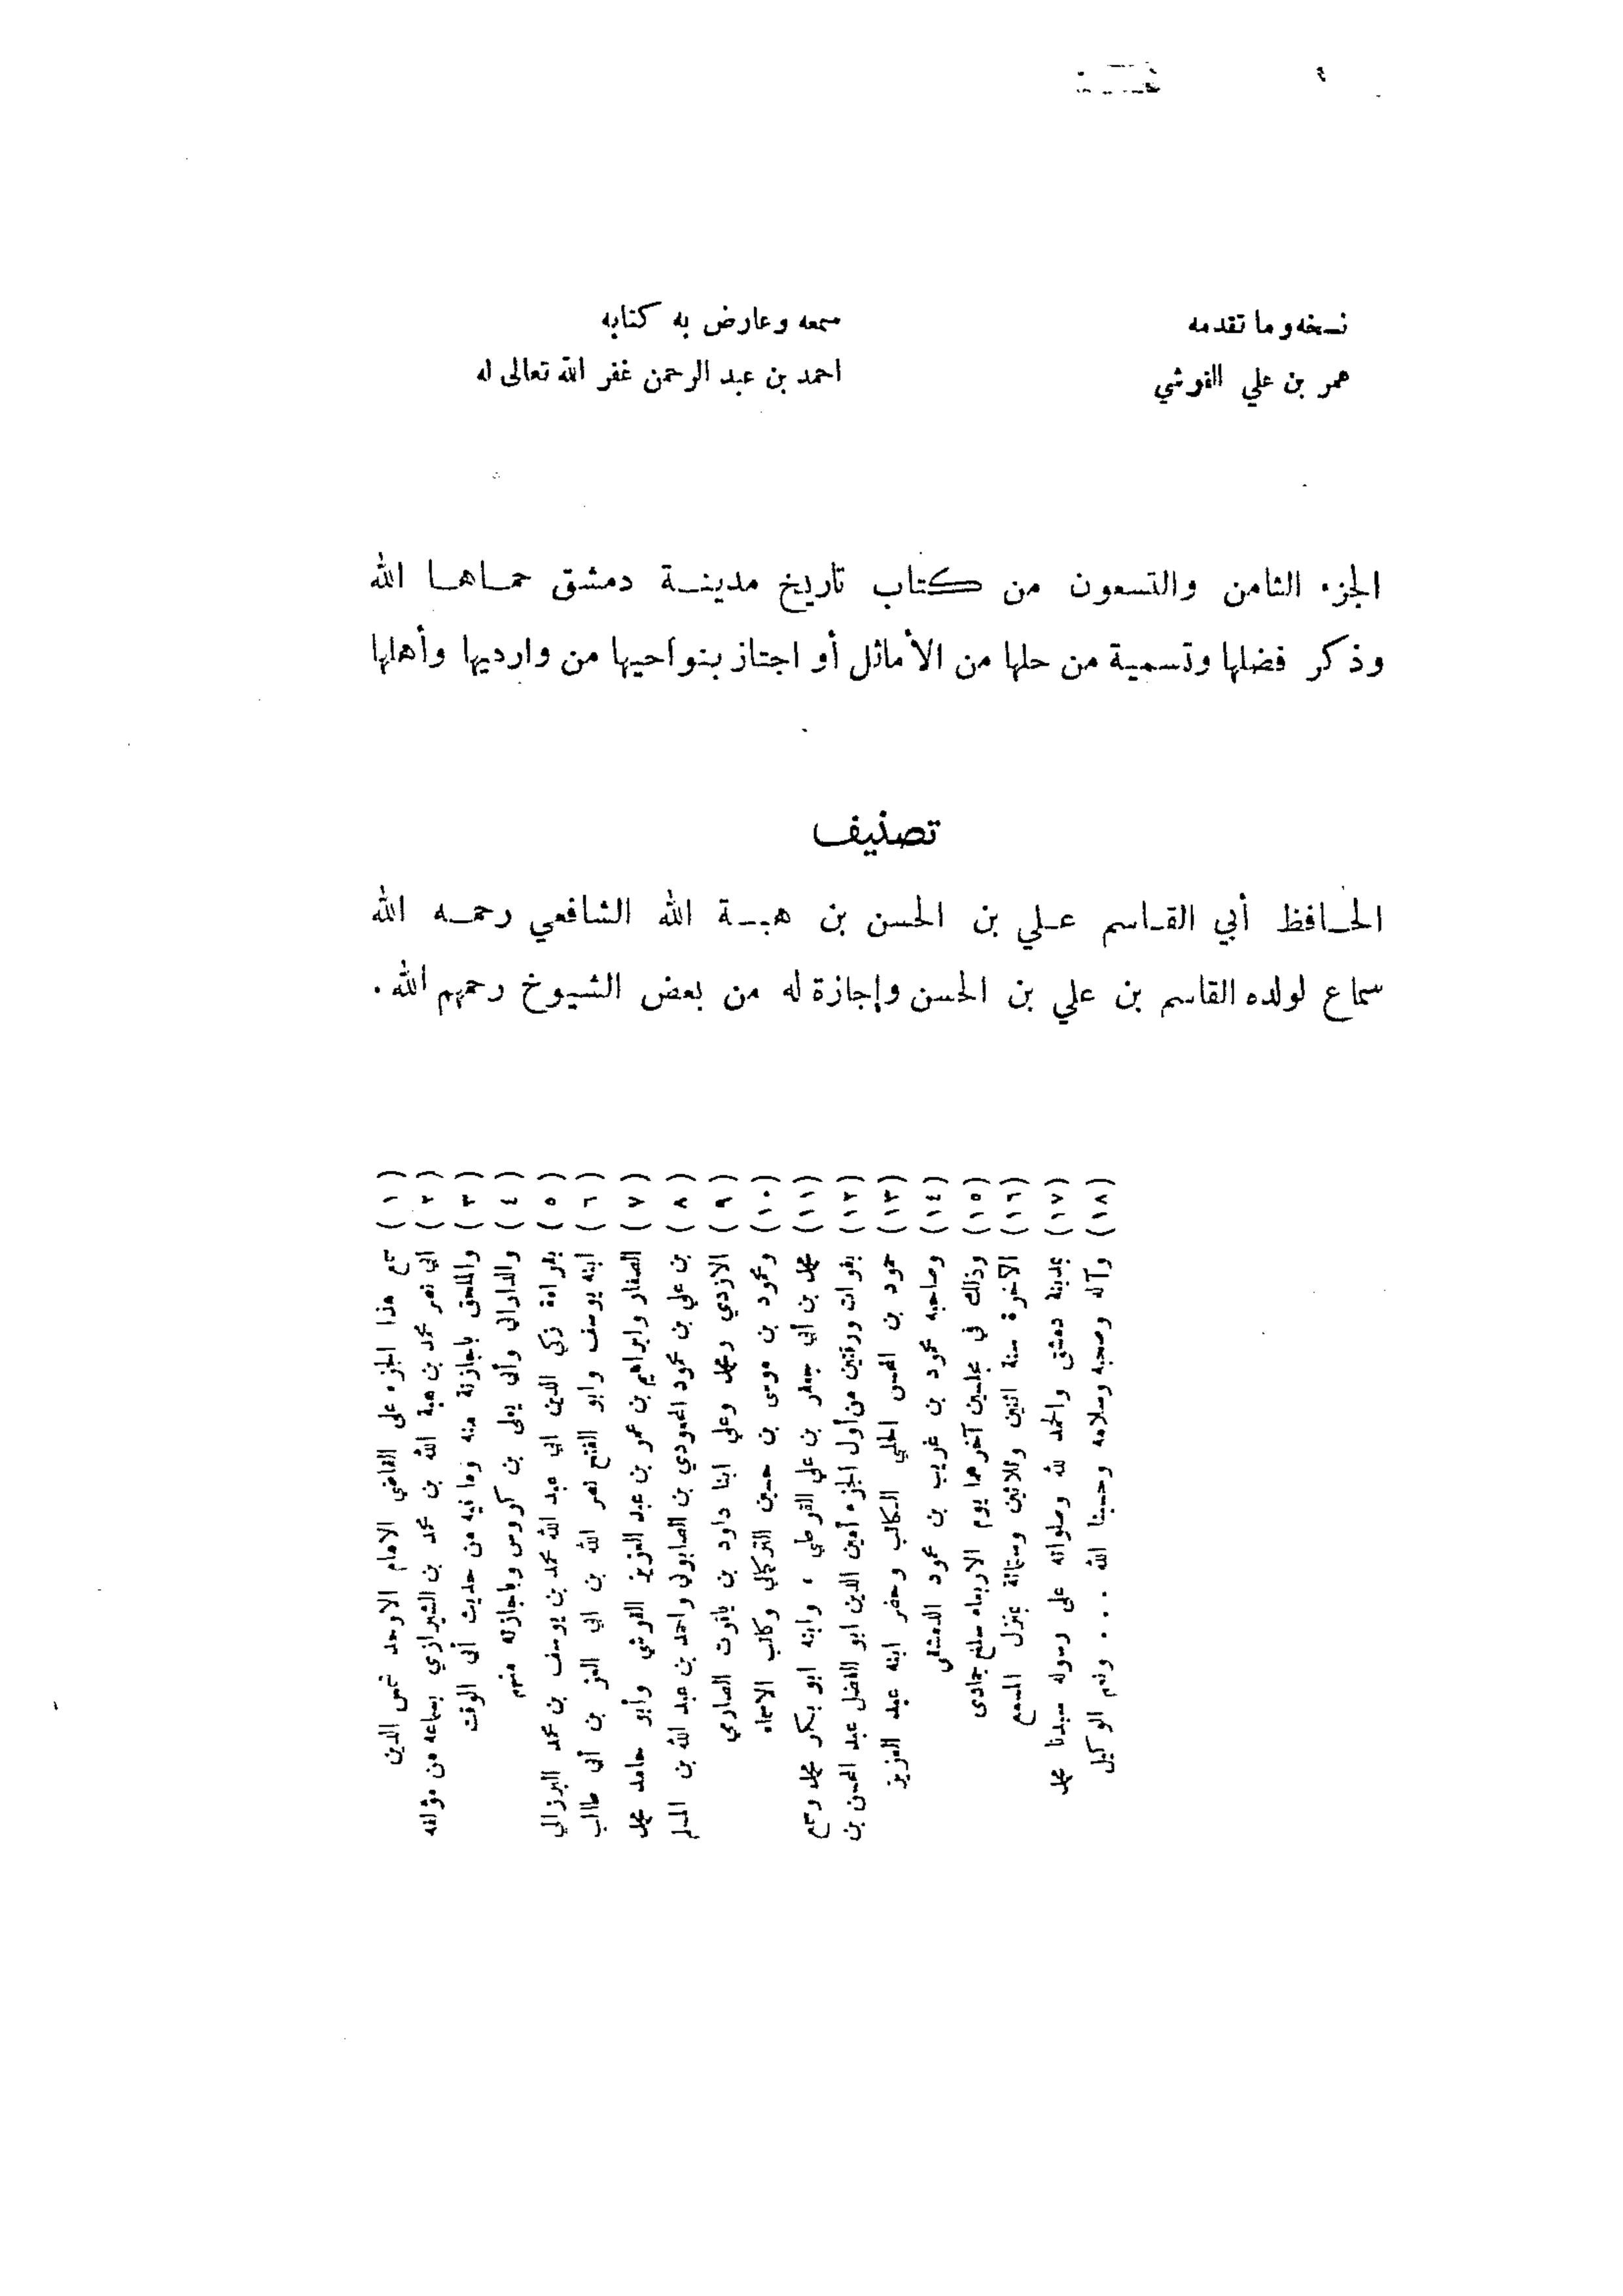 نسخه وما تقدمه
عمر بن علي القرشي
سمعه وعارض به كتابه
احمد بن عبد الرحمن غفر الله تعالى له
الجزء الثامن والتسعون من كتاب تاريخ مدينة دمشق حماها الله
وذكر فضلها وتسمية من حلها من الأماثل أو اجتاز بنواحيها من وارديها وأهلها
تصنيف
الحافظ أبي القاسم علي بن الحسن بن هبة الله الشافعي رحمه الله
سماع لولده القاسم بن علي بن الحسن وإجازة له من بعض الشيوخ رحمهم الله.
(١) سمع هذا الجزء على القاضي الامام الاوحد شمس الدين
(٢) ابي نصر محمد بن هبة الله بن محمد بن الشيرازي بسماعه من مؤلفه
(٣) والملحق باجازته منه وما فيه من حديث أبي الوقت
(٤) والداراني وأبي يعلى بن كروس وباجازته منهم
(٥) بقراءة زكي الدين ابي عبد الله محمد بن يوسف بن محمد البرزالي
(٦) ابنه يوسف وابو الفتح نصر الله بن ابي العز بن أبي طالب
(٧) الصفار وابراهيم بن عمر بن عبد العزيز القرشي وأبو حامد محمد
(٨) بن علي بن محمود المحمودي بن الصابوني واحمد بن عبد الله بن المسلم
(٩) الازدي ومحمد وعلي ابنا داود بن ياقوت الصارمي
(١٠) ومحمود بن موسى بن حسين التركماني وكاتب الاسماء
(١١) محمد بن أبي جعفر بن علي القرطبي ، وابنه ابو بكر محمد وسمع
(١٢) بفوات ورقتين من أول الجزء أمين الدين ابو الفضل عبد المحسن بن
(١٣) حمود بن المحسن الحلبي الكاتب وحضر ابنه عبد العزيز
(١٤) وصاحبه محمود بن غريب بن محمود الدمشقي
(١٥) وذلك في مجلسين آخرهما يوم الاربعاء سلخ جمادى
(١٦) الآخرة سنة اثنين وثلاثين وستمائة بمنزل المسمع
(١٧) بمدينة دمشق والحمد لله وصلواته على رسوله سيدنا محمد
(١٨) وآله وصحبه وسلامه وحسبنا الله .... ونعم الوكيل